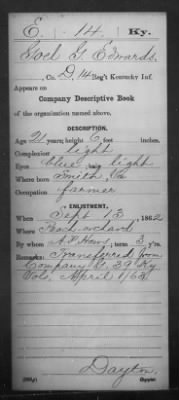 E. 14. Ky.
Joel G. Edwards.
, Co. D, 14 Reg't Kentucky Inf.
Appears on
Company Descriptive Book
of the organization named above.
DESCRIPTION.
Age 21 years; height 6 feet inches.
Complexion light
Eyes blue; hair light
Where born Smith, Va
Occupation farmer
ENLISTMENT.
When Sept 13, 1862
Where Peach orchard
By whom A. J. ; term 3 y'rs.
Remarks: Transferred from
Company 39 Ky
Vols, April 1/63
Dayton
Copyist.